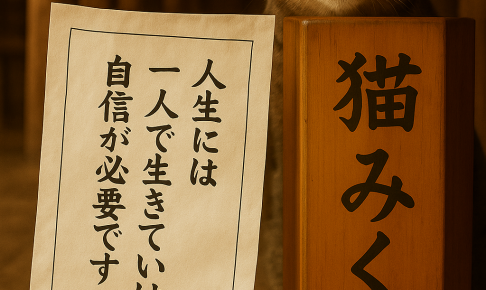 人生には
一人で生きてい
自信が必要です
猫みく